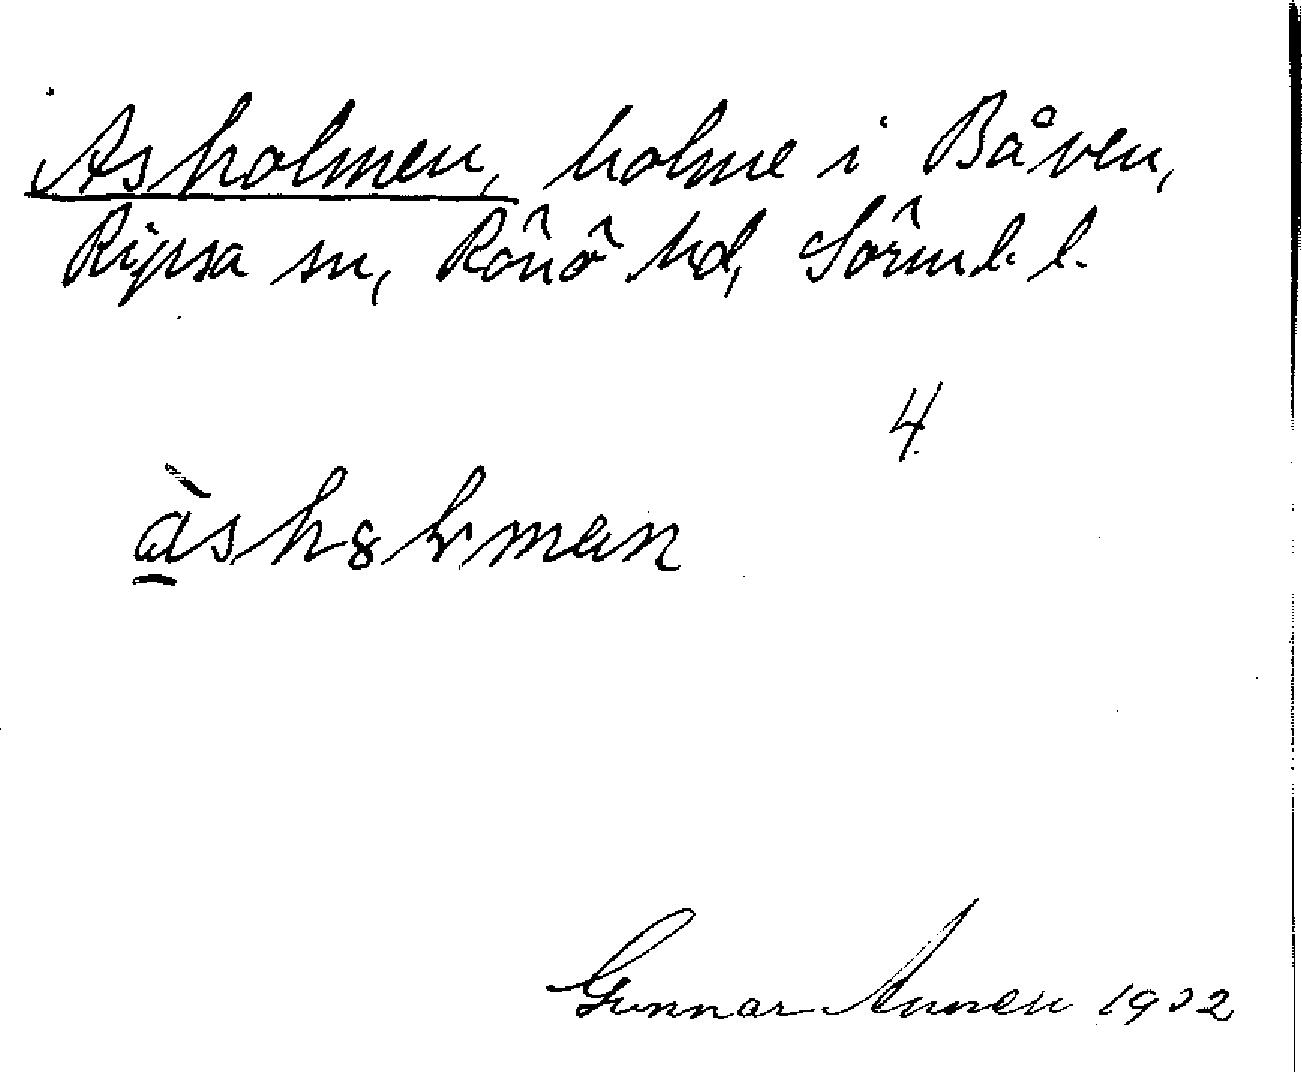 Asholmen, holme i Båven,
Ripsa sn, Rönö hd, Sörml. l.
4
Gunnar 1932